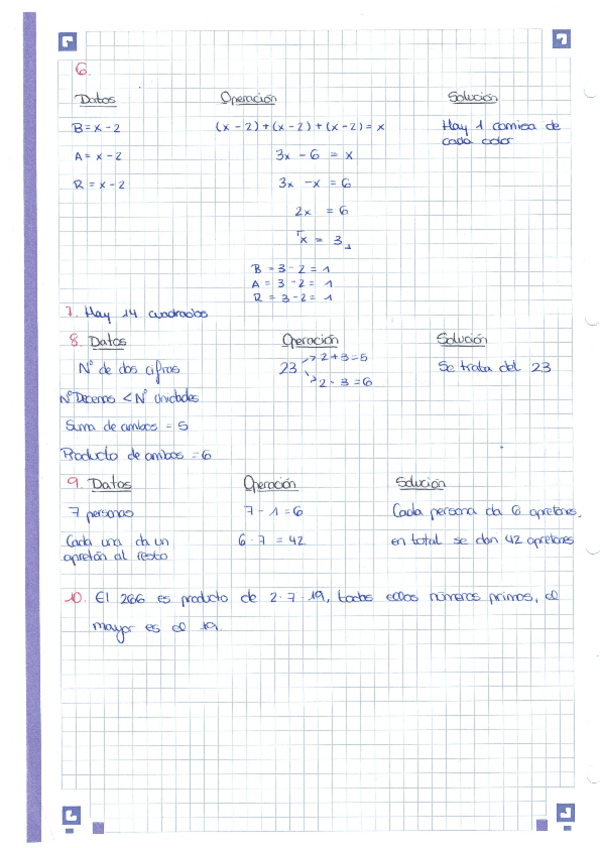 6.
Datos Operación Solución
B = x - 2 (x - 2) + (x - 2) + (x - 2) = x Hay 1 camisa de
cada color
A = x - 2 3x - 6 = x
R = x - 2 3x - x = 6
2x = 6
x = 3
B = 3 - 2 = 1
A = 3 - 2 = 1
R = 3 - 2 = 1
7. Hay 14 cuadrados
8. Datos Operación Solución
Nº de dos cifras 23 → 2 + 3 = 5 Se trata del 23
→ 2 · 3 = 6
Nº Decenas < Nº Unidades
Suma de ambos = 5
Producto de ambos = 6
9. Datos Operación Solución
7 personas 7 - 1 = 6 Cada persona da 6 apretones,
Cada una da un 6 · 7 = 42 en total se dan 42 apretones
apretón al resto
10. El 266 es producto de 2 · 7 · 19, todos ellos números primos, el
mayor es el 19.